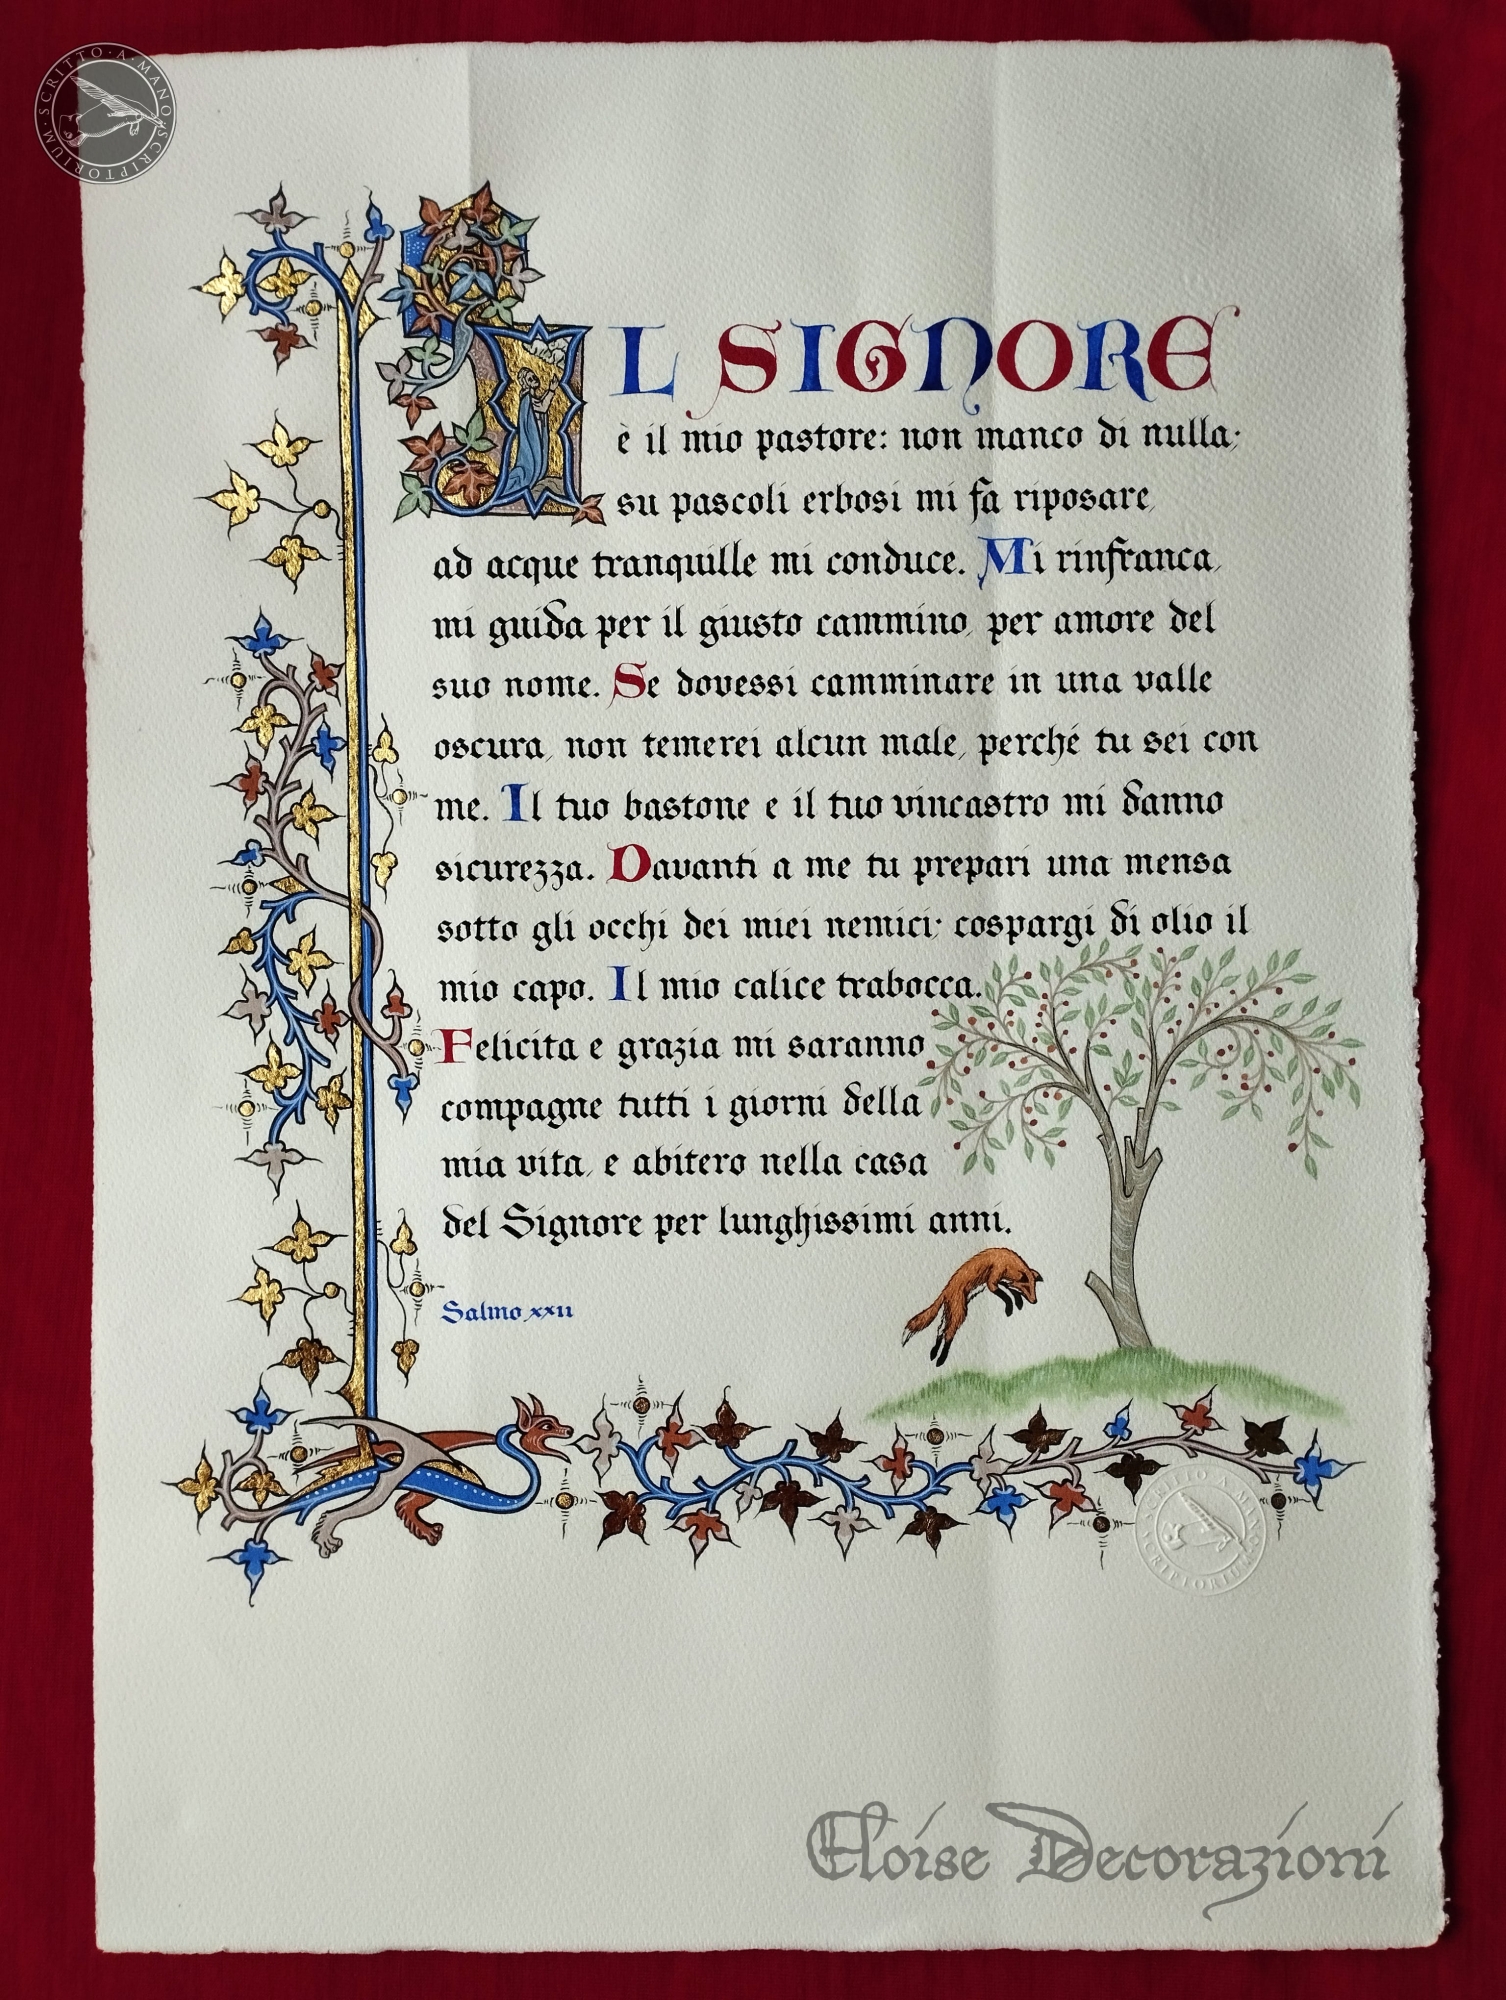 SCRITTO · A · MANO · SCRIPTORIUM ·
IL SIGNORE
è il mio pastore: non manco di nulla;
su pascoli erbosi mi fa riposare,
ad acque tranquille mi conduce. Mi rinfranca,
mi guida per il giusto cammino, per amore del
suo nome. Se dovessi camminare in una valle
oscura, non temerei alcun male, perché tu sei con
me. Il tuo bastone e il tuo vincastro mi danno
sicurezza. Davanti a me tu prepari una mensa
sotto gli occhi dei miei nemici; cospargi di olio il
mio capo. Il mio calice trabocca.
Felicita e grazia mi saranno
compagne tutti i giorni della
mia vita, e abitero nella casa
del Signore per lunghissimi anni.
Salmo xxii
SCRITTO A MANO SCRIPTORIUM
Eloise Decorazioni